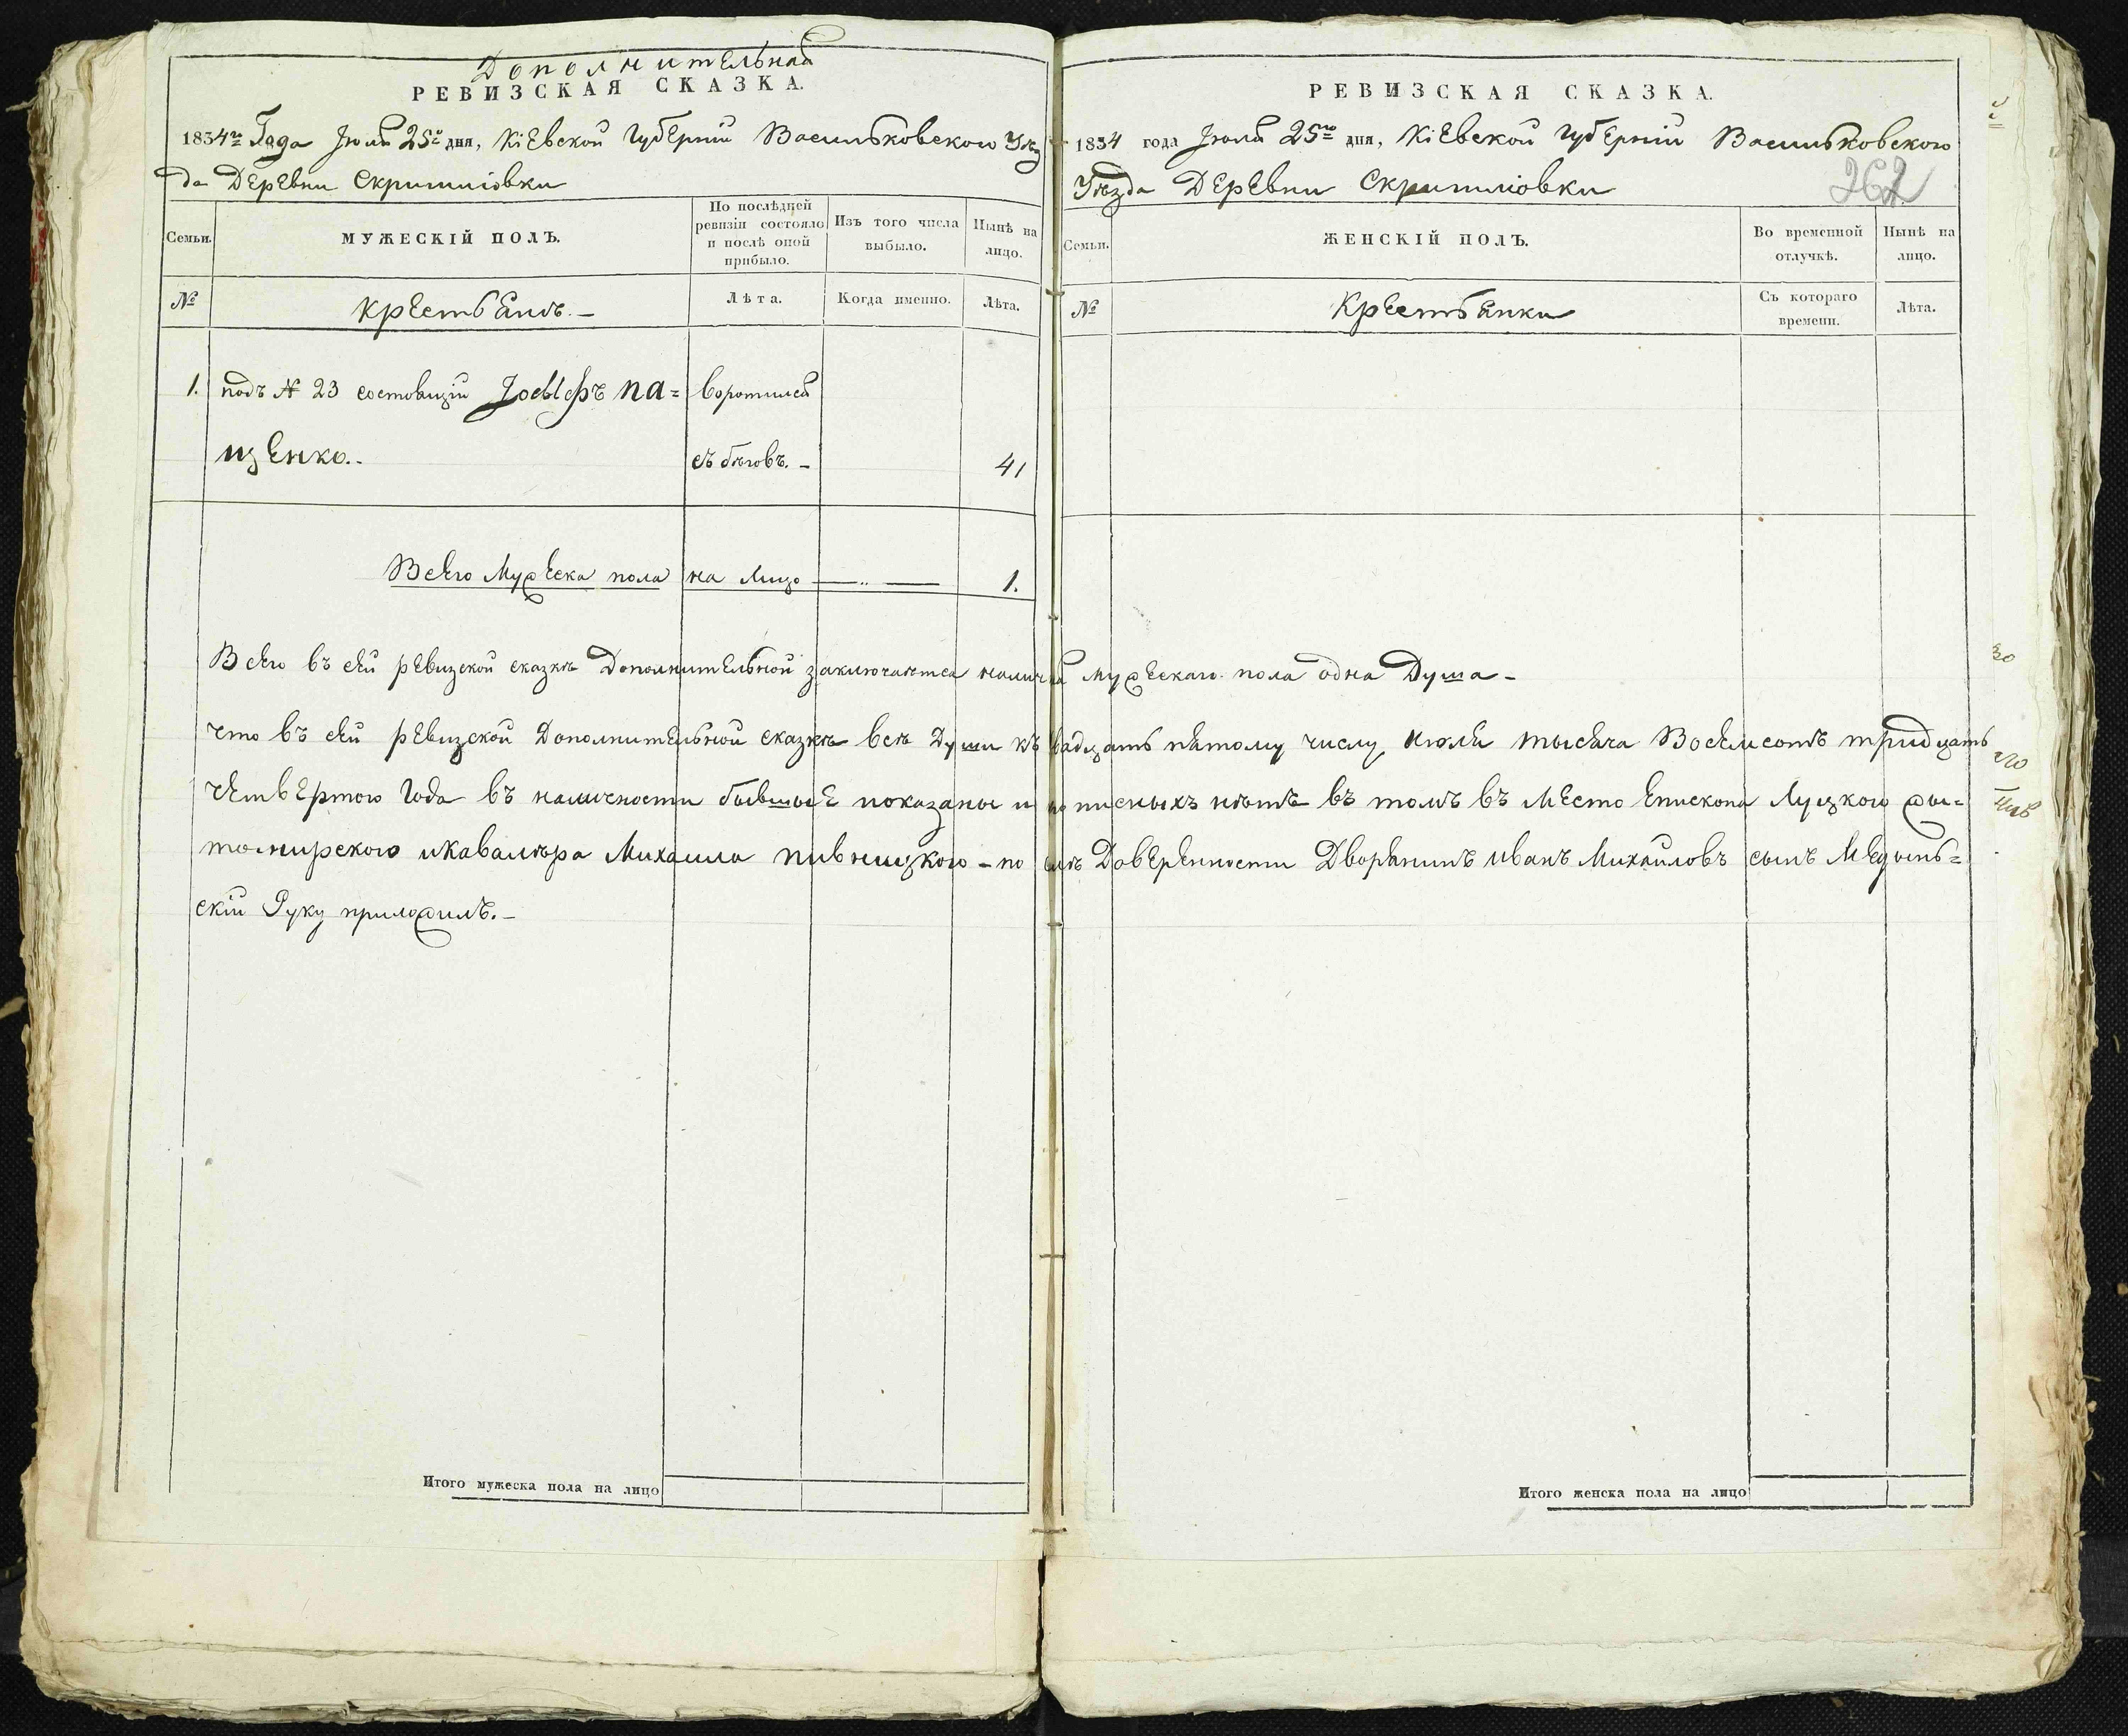 Дополнительная
РЕВИЗСКАЯ СКАЗКА.
1834го Года Июля 25го дня, Кіевской Губерніи Васильковского Уѣз
да Деревни Скрипиліовки
Семьи.
МУЖЕСКІЙ ПОЛЪ.
По послѣдней ревизіи состояло и послѣ оной прибыло.
Изъ того числа выбыло.
Нынѣ на лицо.
№
Крестьянъ. —
Лѣта.
Когда именно.
Лѣта.
1. подъ № 23 состовщій Іосыфъ Па= воротился
изенко. съ бѣговъ. — 41
Всего Мужеска пола на лицо —..— 1.
РЕВИЗСКАЯ СКАЗКА.
1834 года Июля 25го дня, Кіевской Губерніи Васильковского
Уѣзда Деревни Скрипиліовки
262
Семьи.
ЖЕНСКІЙ ПОЛЪ.
Во временной отлучкѣ.
Нынѣ на лицо.
№
Крестьянки
Съ котораго времени.
Лѣта.
Всего въ сей ревизской сказкѣ Дополнительной заключаѣтся налична мужескаго пола одна Душа —
что въ сей ревизской Дополнительной сказкѣ всѣ Души къ вадцать пятому числу июля тысяча Восемсотъ тридцать
четвертого Года въ наличности бывшые показаны и пописныхъ нѣтъ въ томъ въ Место Епископа Луцкого жы=
томирского и Кавалѣра Михаила Пивницкого — по его Доверенности Дворянинъ Иванъ Михайловъ сынъ Медынь=
скій Руку приложилъ. —
Итого мужеска пола на лицо
Итого женска пола на лицо